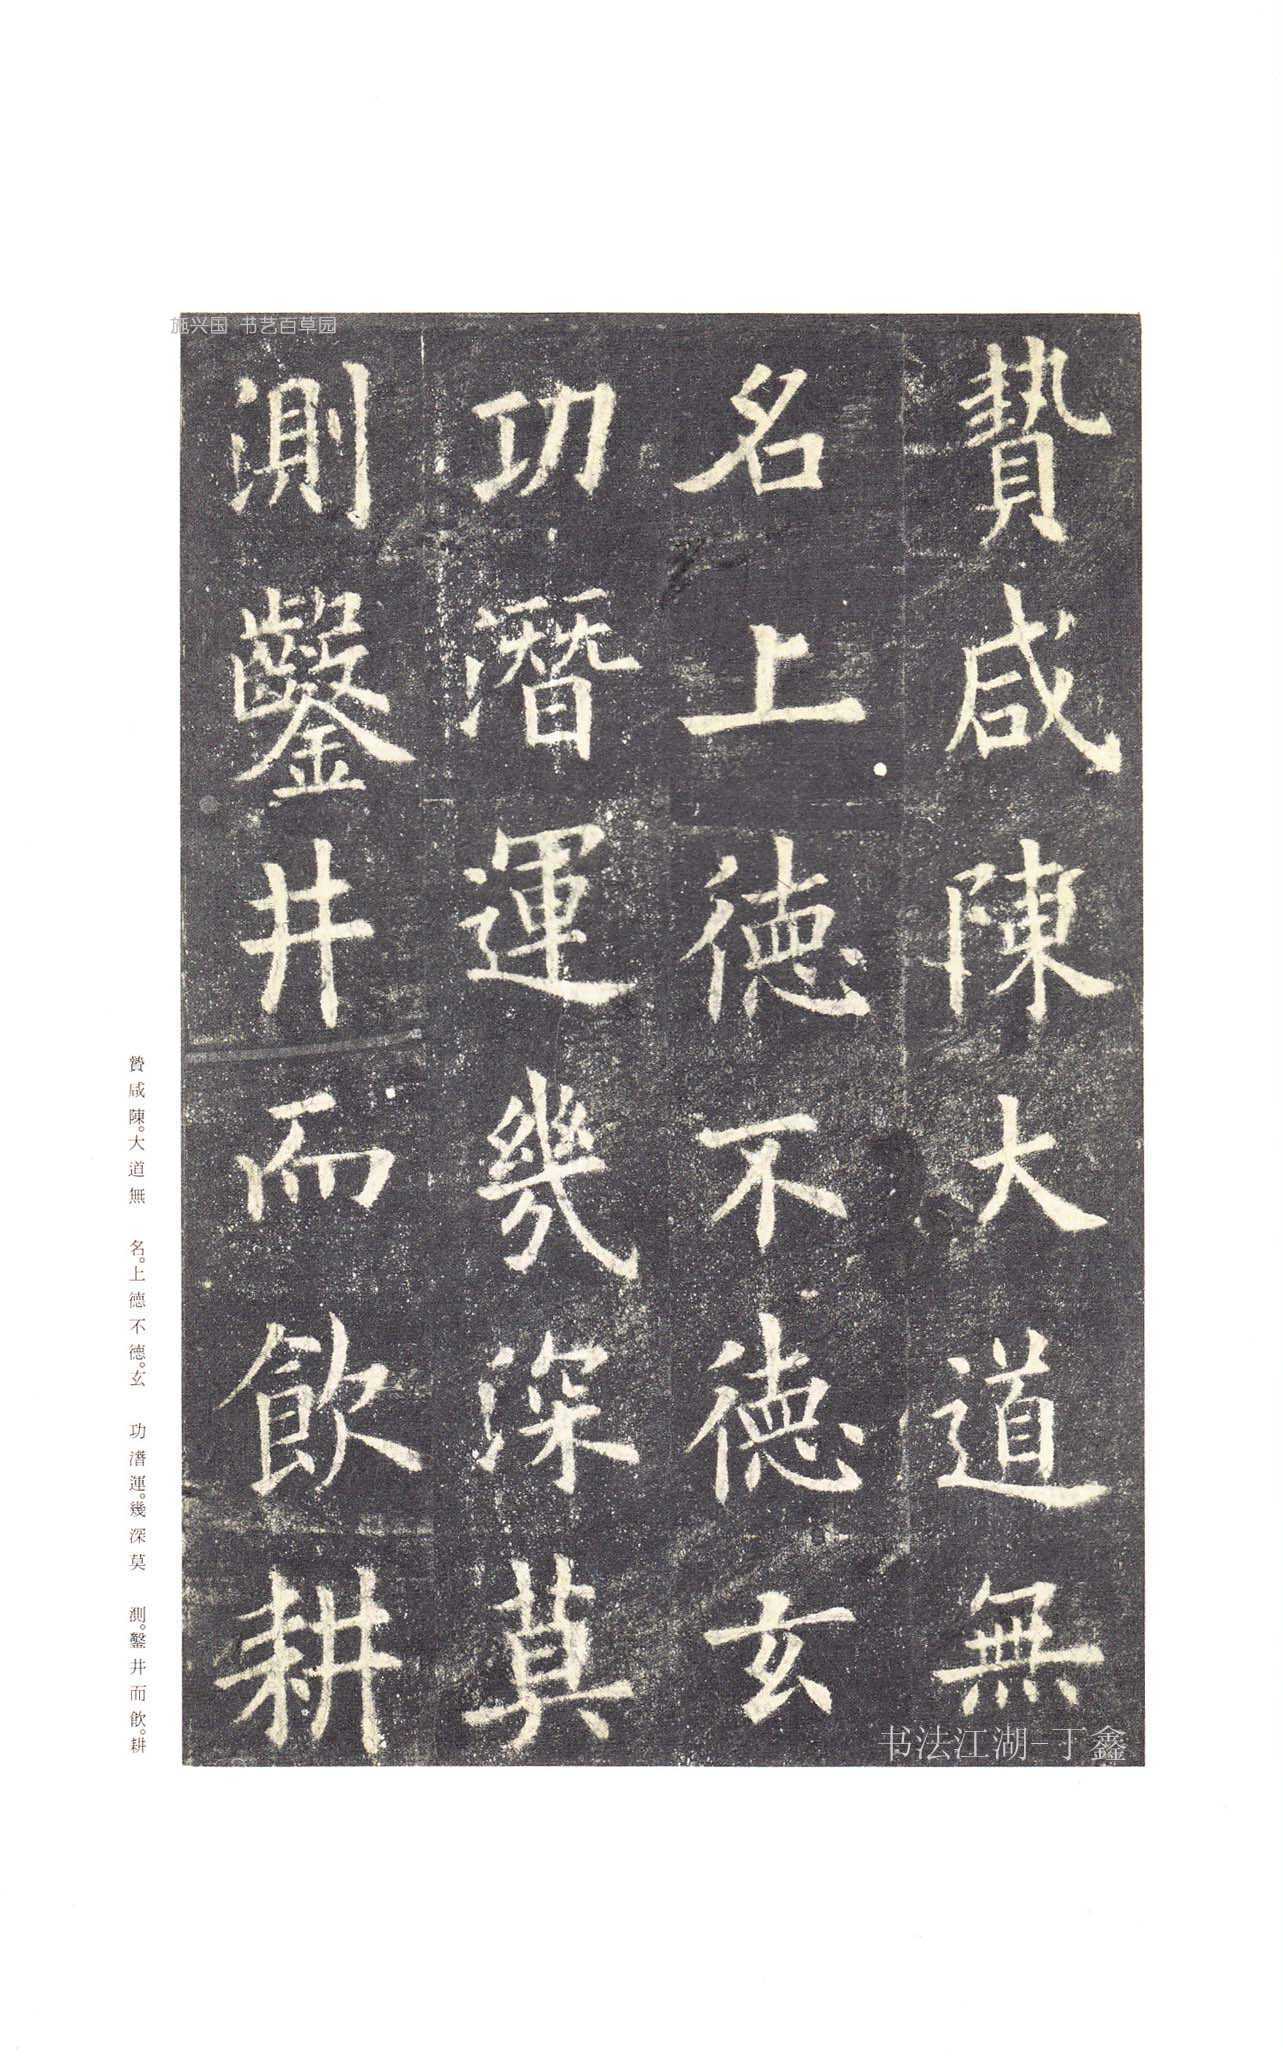 贄咸陳大道無
名上德不德玄
功潛運幾深莫
測鑿井而飲耕
贄咸陳。大道無 名。上德不德。玄 功潛運。幾深莫 測。鑿井而飲。耕
施兴国 书艺百草园
书法江湖-丁鑫